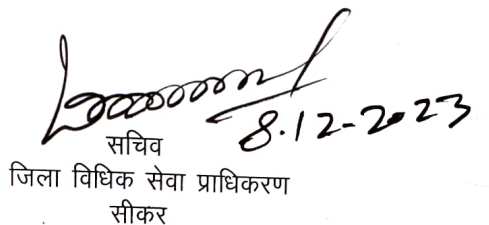 8.12-2023
सचिव
जिला विधिक सेवा प्राधिकरण
सीकर